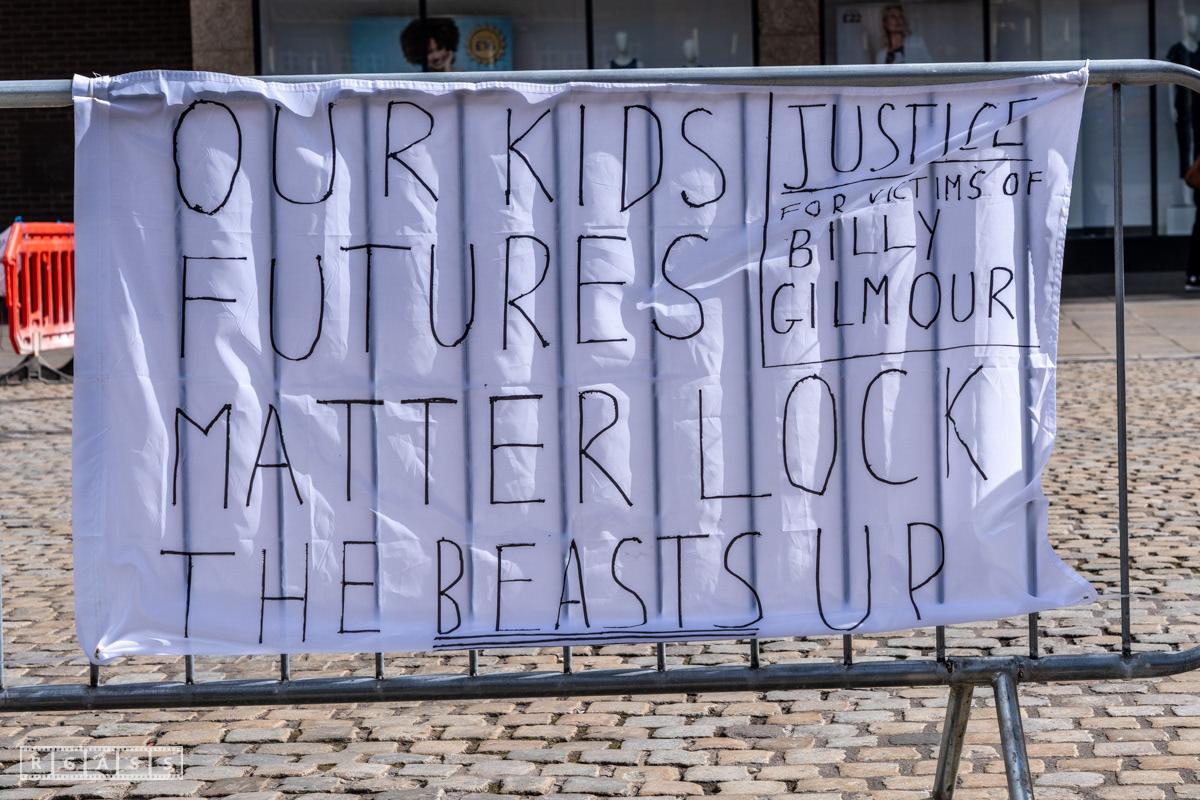 OUR KIDS
FUTURES
MATTER LOCK
THE BEASTS UP
JUSTICE
FOR VICTIMS OF
BILLY
GILMOUR
£22
RGASS